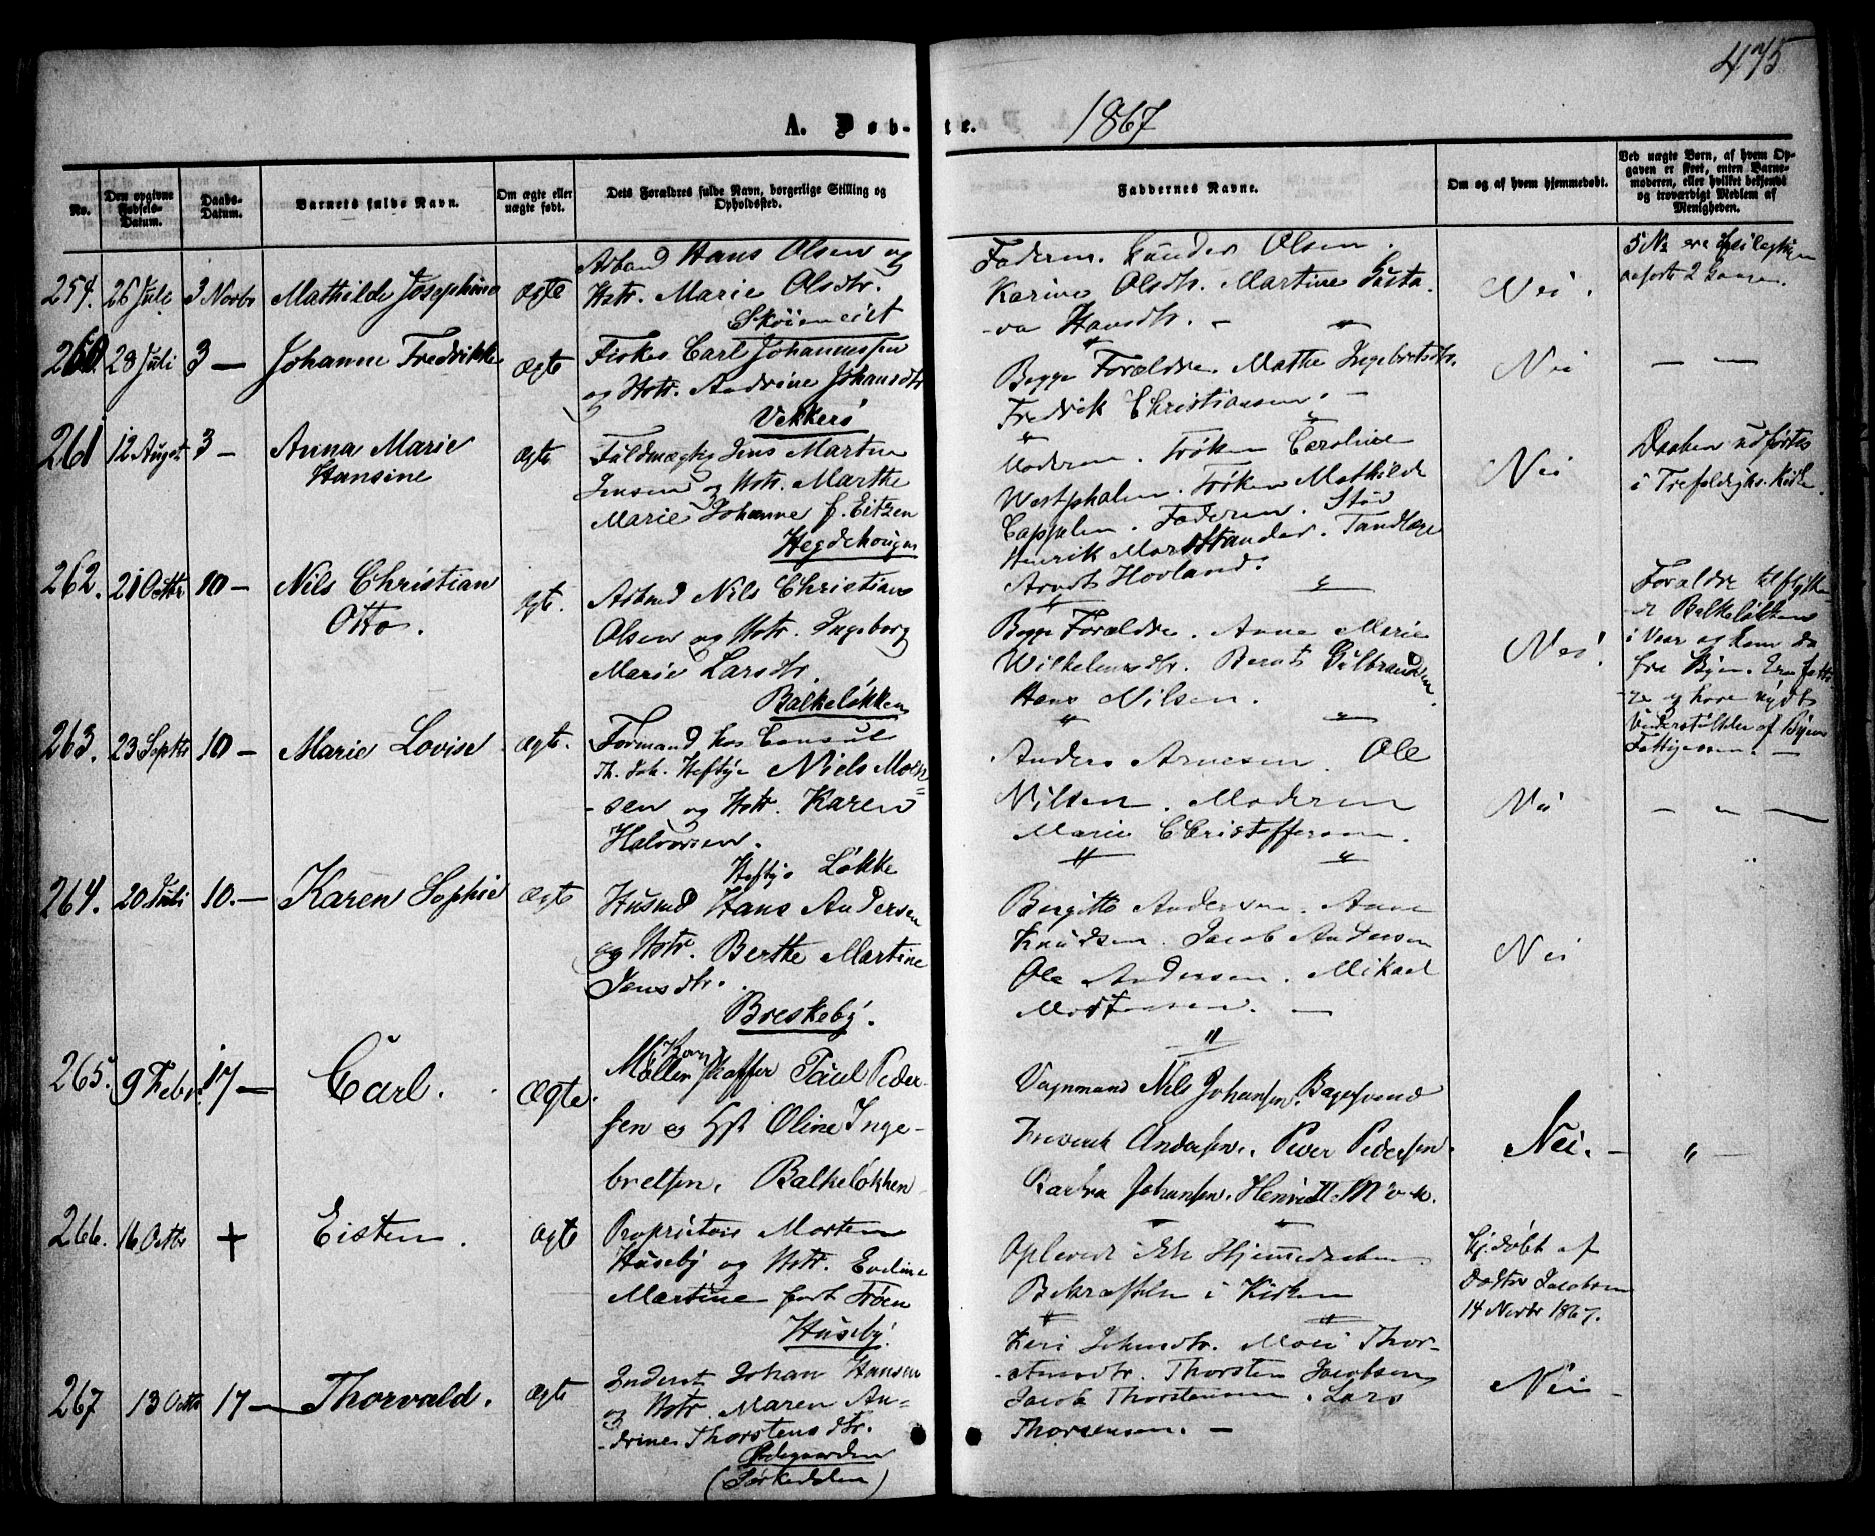 475
A. Døb-te. 1867
No.
Den opgivne Fødsels-Datum.
Daabs-Datum.
Barnets fulde Navn.
Om ægte eller uægte født.
Dets Forældres fulde Navn, borgerlige Stilling og Opholdssted.
Faddernes Navne.
Om og af hvem hjemmedøbt.
Ved uægte Børn, af hvem Opgaven er skeet, enten Barnemoderen, eller hvilket bekjendt og troværdigt Medlem af Menigheden.
254. 26 Juli 3 Novbr Mathilde Josephine Ægte
Arbmd Hans Olsen og
Hstr. Marie Olsdtr.
Skøien eiet
Faderen. Gunder Olsen.
Karine Olsdtr. Martine Gusta-
va Hansdtr. —
Nei.
260. 28 Juli 3 — Johanne Fredrikke Ægte
Fisker Carl Johannessen
og Hstr. Andrine Johansdtr
Vekkerø
Begge Forældre. Mathe Ingebretsdtr.
Fredrik Christiansen. —
Nei — —
261 12 August 3 — Anna Marie
Hansine
Ægte
Fuldmægtig Jens Martin
Jensen og Hstr. Marthe
Marie Johanne f. Eitzen
Hegdehougen
Moderen. Frøken Caroline
Westphalen. Frøken Mathilde
Cappelen. Faderen. Stud
Henrik Morstander. Tandlæge
Arndts Hovland.
Nei
Daaben udførtes
i Trefoldighs. Kirke.
262. 21 Octbr 10 — Nils Christian
Otto.
Ægte.
Arbmd Nils Christian
Olsen og Hstr. Ingeborg
Marie Larsdtr.
Balkeløkken
Begge Forældre. Anne Marie
Wilhelmsdtr. Bernt Gulbrandsen.
Hans Nilsen.
Nei.
Forældre tilflytte-
de Balkeløkken
i Vaar og kom da
fra Byen. Ere fatti-
ge og have nydt
Understøttelse af Byens
Fattigvæsen. —
263. 23 Septbr 10 — Marie Lovise Ægte.
Formand hos Consul
Th. Joh. Heftye Niels Moen-
sen og Hstr. Karen
Halvorsen.
Heftye Løkke
Anders Arnesen. Ole
Nilsen. Moderen
Marie Christoffersen.
Nei — " —
264. 20 Juli 10. — Karen Sophie Ægte
Husmd Hans Andersen
og Hstr. Berthe Martine
Jensdtr.
Breskeby.
Birgitte Andersen. Anne
Knudsen. Jacob Andersen
Ole Andersen. Mikael
Mortensen. —
Nei
265. 9 Febr. 17 — Carl. Ægte.
Møller Paul Peder-
sen og Hst Oline Inge-
bretsen. Balkeløkken
Vognmand Nils Johansen. Bagersvend
Frederik Andersen. Peder Pedersen.
Barbra Johansen. Henriette
Nei. — " —
266. 16 Octbr + Eisten. Ægte
Proprietair Morten
Huseby og Hstr. Eveline
Martine født Frøen
Huseby.
Oplevede ikke Hjemmedaabens
Bekræftelse i Kirken
Hj.døbt af
Doktor Jacobsen
14 Novbr 1867.
267 13 Octbr 17 — Thorvald. Ægte
Inderst Johan Hansen
og Hstr. Maren An-
drine Thorstensdtr.
Ødegaarden
(Sørkedalen)
Kari Johnsdtr. Mari Thor-
stensdtr. Thorsten Jacobsen
Jacob Thorstensen. Lars
Thorstensen. —
Nei —